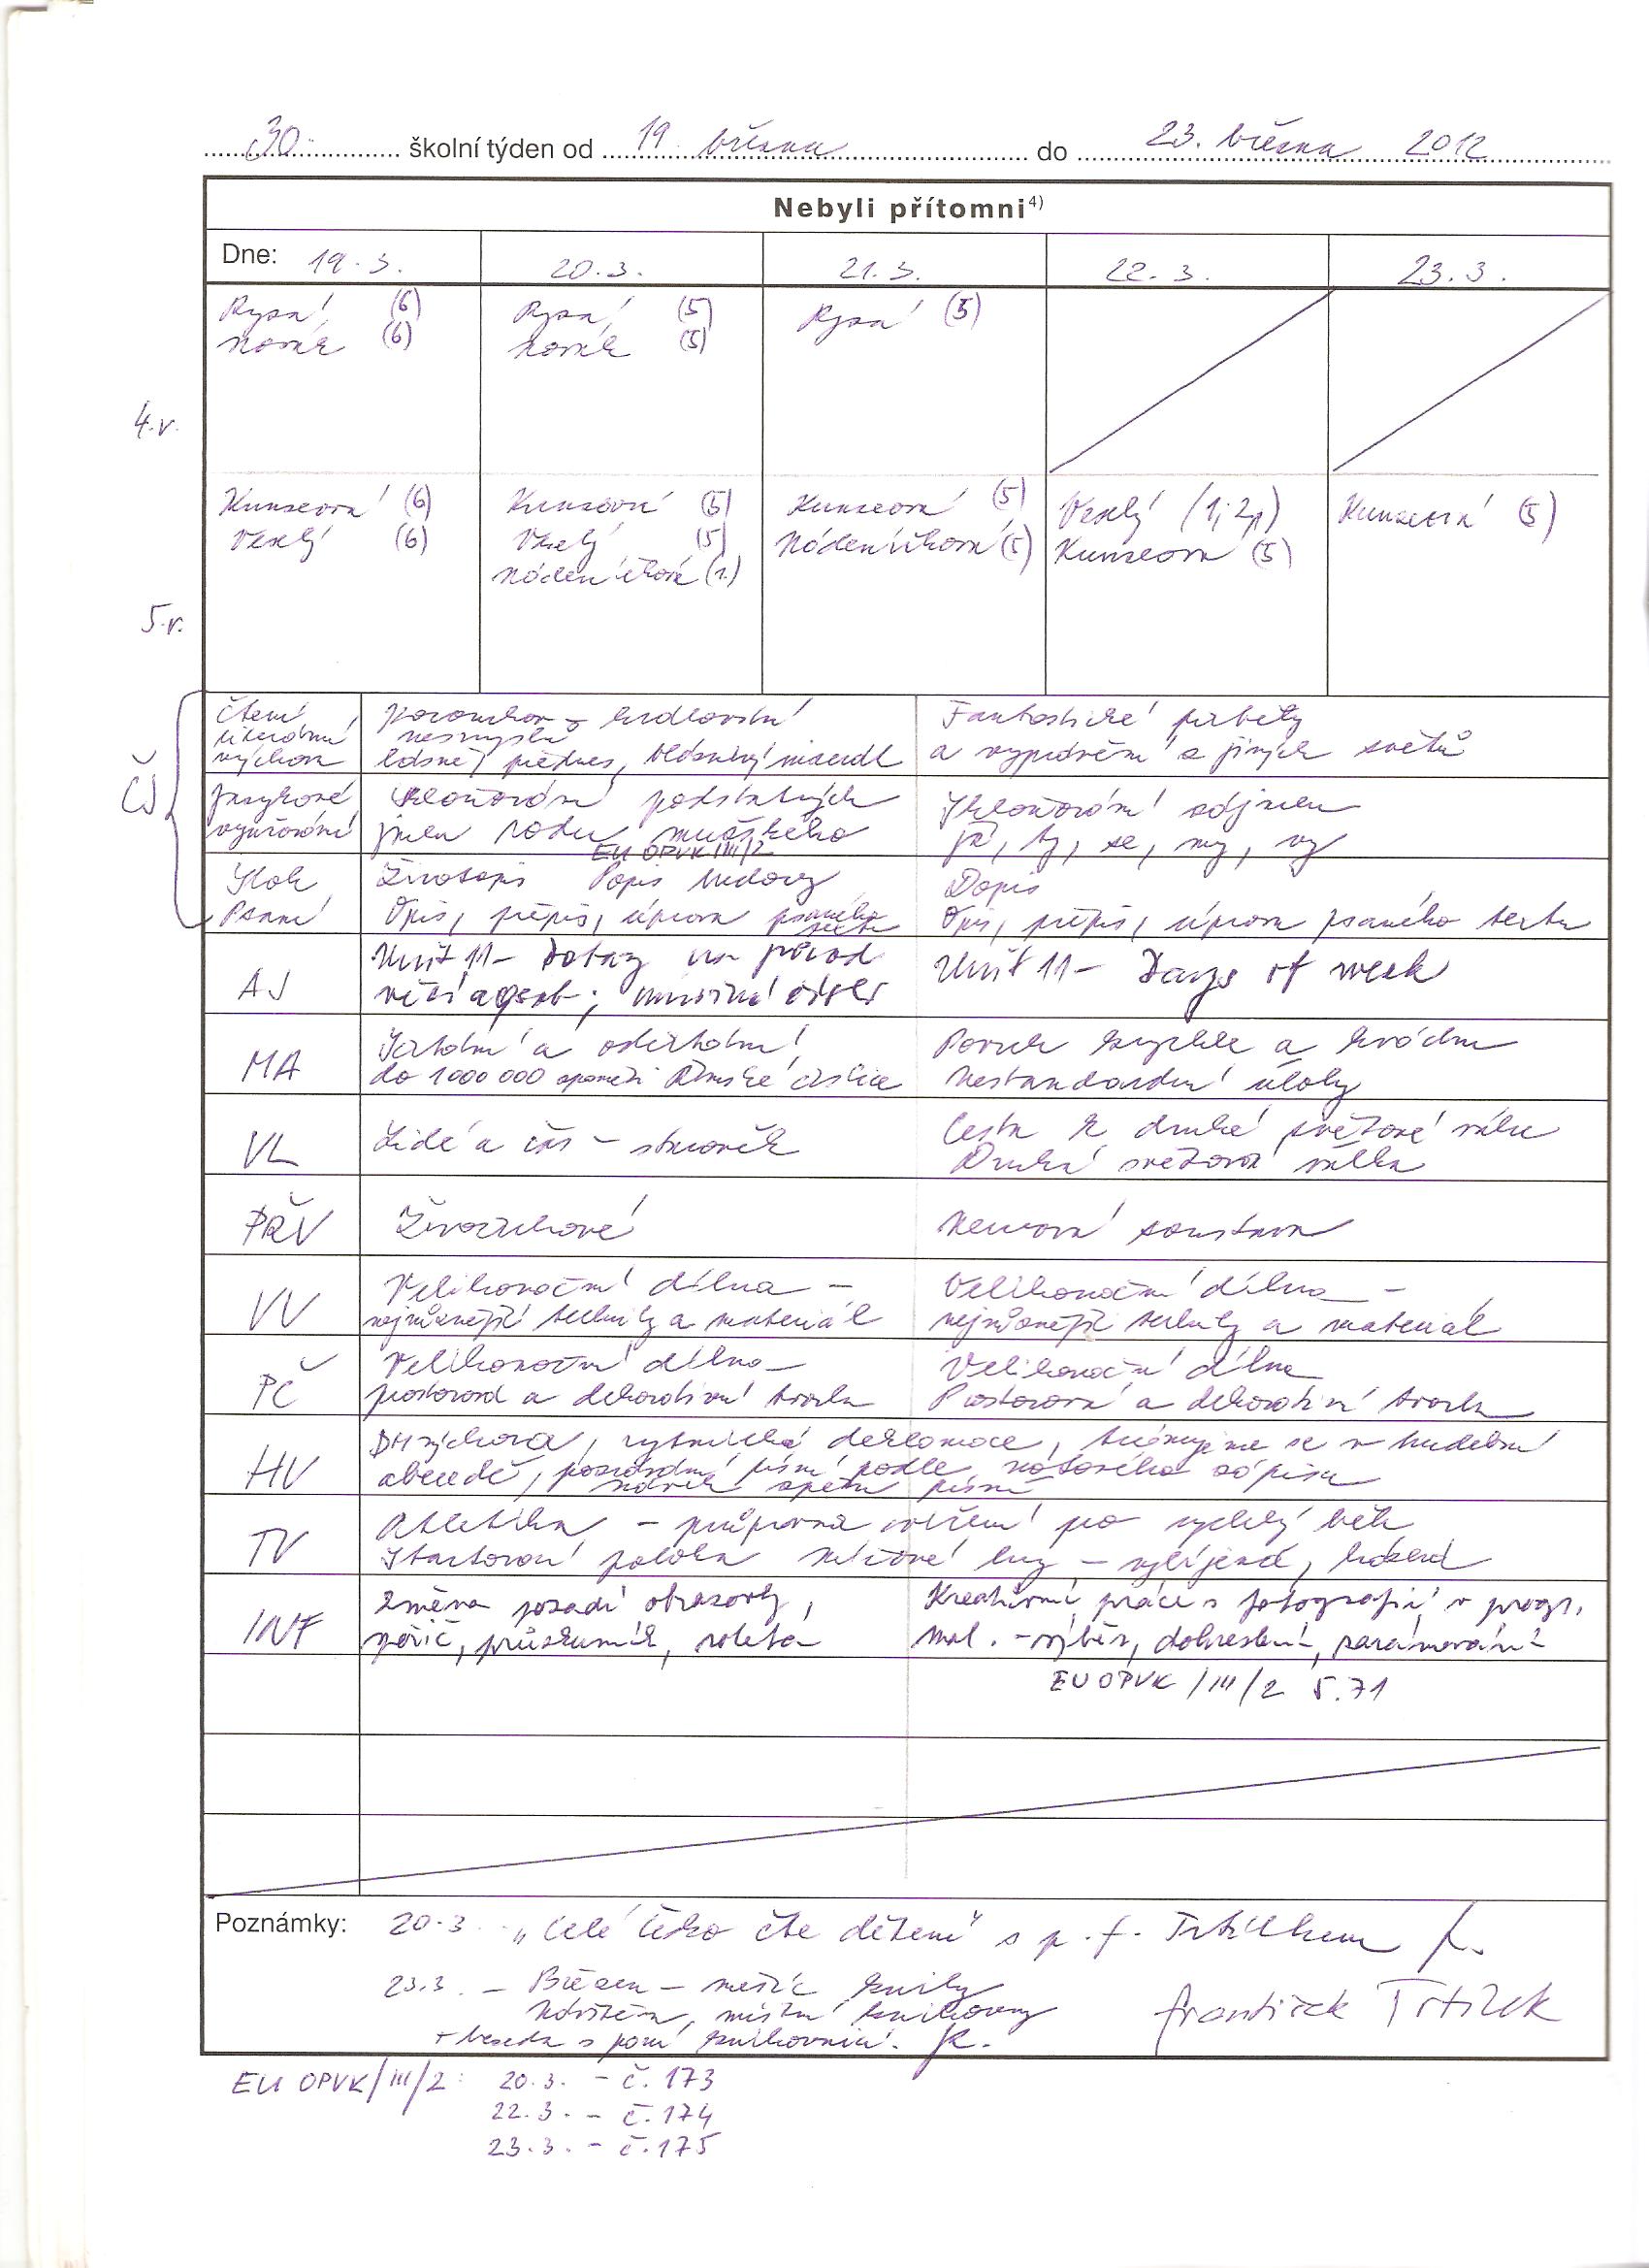 30. školní týden od 19. března do 23. března 2012
Nebyli přítomni4)
Dne: 19.3. 20.3. 21.3. 22.3. 23.3.
(6) (5) (5)
Novák (6) Novák (5)
4.r.
(6) (5) (5) Veselý (1, 2) (5)
Veselý (6) Veselý (5) Nádeníčková (5) (5)
Nádeníčková (1)
5.r.
ČJ
Čtení
literární
výchova
nesmyslná
básně, přednes
Fantastické příběhy
a vyprávění z jiných světů
Jazykové
vyučování
Skloňování podstatných
jmen rodu mužského
Skloňování zájmen
já, ty, se, my, vy
EU OPVK III/2
Sloh
Životopis Popis budovy
Dopis
Psaní
Opis, přepis, úprava psaného
textu
Opis, přepis, úprava psaného textu
AJ
Unit 11 - Dotaz na původ
Unit 11 - Days of week
MA
do 1 000 000 zpaměti Římské číslice
Povrch krychle a kvádru
Nestandardní úlohy
VL
Lidé a čas – středověk
Cesta k druhé světové válce
Druhá světová válka
PŘV
Živočichové
Nervová soustava
VV
Velikonoční dílna –
nejrůznější techniky a materiál
Velikonoční dílna –
nejrůznější techniky a materiál
PČ
Velikonoční dílna –
prostorová a dekorativní tvorba
Velikonoční dílna
Prostorová a dekorativní tvorba
HV
rytmická deklamace, se v hudební
abecedě, písní podle notového zápisu
TV
Atletika – průpravná cvičení pro rychlý běh
Startovní poloha Míčové hry – vybíjená, házená
INF
Změna pozadí obrazovky,
spořič, průzkumník, roleta
Kreativní práce s fotografií v progr.
Mal. – výběr, dokreslení, zarámování
EU OPVK /III/2 5.71
Poznámky: 20.3. „Celé Česko čte dětem“ s p. f. Trtílkem
23.3. – Březen – měsíc knihy
Návštěva místní knihovny
+ beseda s paní knihovnicí.
František Trtílek
EU OPVK/III/2: 20.3. – č. 173
22.3. – č. 174
23.3. – č. 175